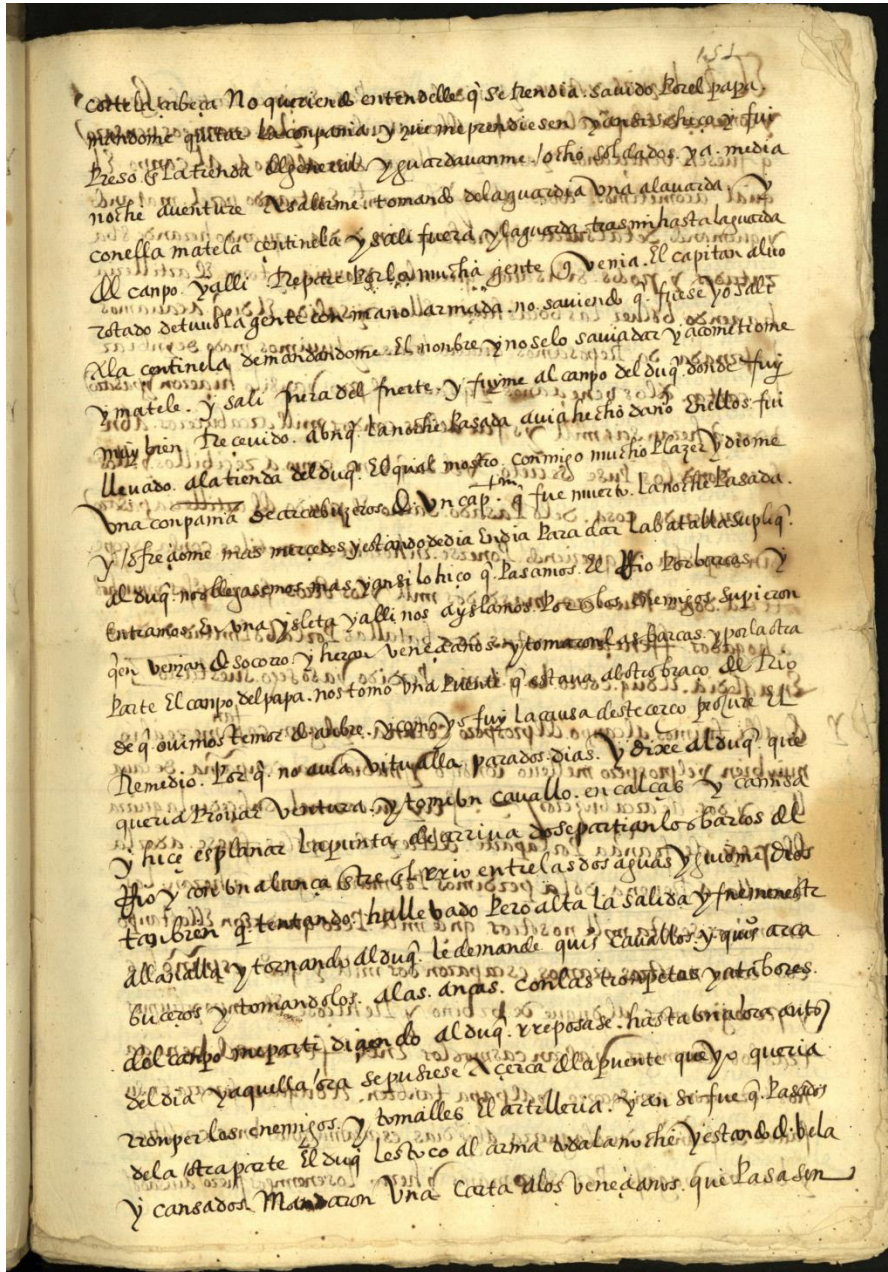 151
corte la cabeça No queriendo entendelle q̃ se rendia. savido Por el papa,
mandome quitar la conpania y que me prendiesen y ansi se hiço y fuy
Preso a la tienda del general y guardavanme ocho soldados y a media
noche aventure a salirme. tomando de la guardia una alavarda. y
con ella mate la centinela y sali fuera y la guarda tras mi hasta la guarda
del canpo y alli Repare Por la mucha gente q̃ venia. El capitan
rotado detuvo la gente con mano armada. no saviendo q̃ fuese yo sali
a la centinela demandandome. El nonbre y no se lo savia dar y acometiome
y matele. y sali fuera del fuerte. y fuyme al canpo del duq̃. donde fuy
muy bien Reçevido. abnq̃. la noche Pasada avia hecho daño en ellos fui
llevado a la tienda del duq̃. El qual mostro conmigo mucho Plazer y diome
una conpania de arcabuzeros de un cap. q̃ fue muerto. la noche Pasada.
y ofreçiome mas mercedes y estando de dia en dia Para dar la batalla supliq̃.
al duq̃. nos llegasemos mas y ansi lo hiço q̃ Pasamos. El Rio Por barcas. y
entramos. En una ysleta y alli nos ayslamos. Por q̃ los enemigos supieron
q̃ en venian de socorro. y heran veneçianos. y tomaron las barcas. y por la otra
Parte El canpo del papa. nos tomo una Puente q̃ estava al otro braço del Rio
de q̃ ovimos temor de anbre. y como yo fuy la causa deste cerco procure El
Remedio. Por q̃. no avia vitualla para dos dias. y dixe al duq̃. que
queria Provar ventura. y tome un cavallo. en calças y camisa
y hiçe esplanar la punta de arriva do se partian los braços del
Rio y con una lança entre el rrio entre las dos aguas y guiome dios
tan bien q̃. tentando. halle vado Pero alta la salida y fue menester
allanalla y tornando al duq̃. le demande quis cavallos. y quis arca
buceros y tomandolos. a las. ancas. con las tronpetas y atabores.
del canpo me parti diçiendo al duq̃. rreposase. hasta una ora antes
del dia y aquella ora se pusiese a çerca de la puente que yo queria
rronper los enemigos. y tomalles El artilleria. y an si fue q̃. Pasados
de la otra parte El duq̃ les toco al arma toda la noche y estando de vela
y cansados Mandaron Una carta a los veneçianos. que Pasasen